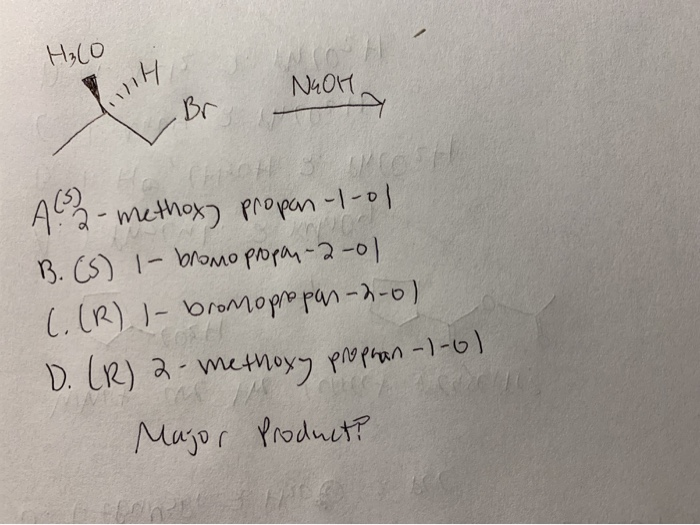 H₃CO
H
Br
NaOH
A. (S) 2-methoxy propan-1-ol
B. (S) 1-bromopropan-2-ol
C. (R) 1-bromopropan-2-ol
D. (R) 2-methoxy propan-1-ol
Major Product?